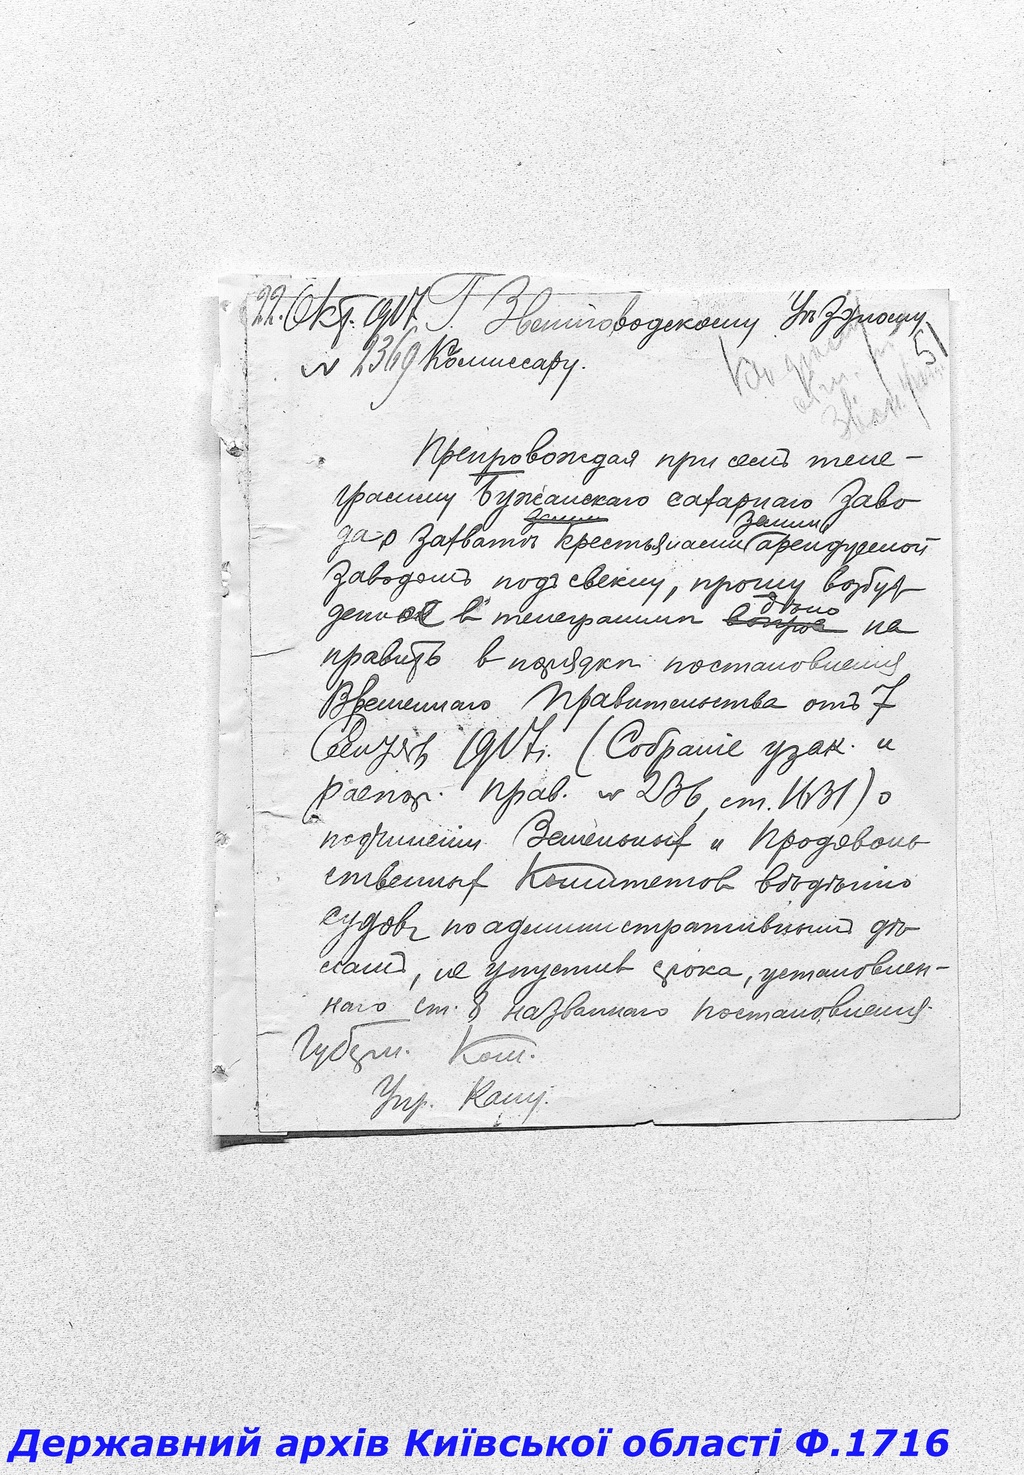 22. Окт. 1917. Г. Звенигородскому Уѣздному
№ 2369 Комиссару.
51
Препровождая при семъ теле-
грамму Бужанскаго сахарнаго Заво
да о захватѣ крестьянами земли арендуемой
Заводомъ подъ свеклу, прошу возбуж
денное в телеграммѣ дѣло на
править в порядкѣ постановления
Временнаго Правительства отъ 7
Сентяб. 1917г. (Собраніе узак. и
распор. Прав. № 236, ст. 1631) о
подчиненіи Земельных и Продоволь
ственных Комитетов вѣдѣнію
судов по административнымъ дѣ
ламъ, не упустив срока, установлен-
наго ст. 8 названнаго постановления.
Губерн. Ком.
Упр. Канц.
Державний архів Київської області Ф.1716